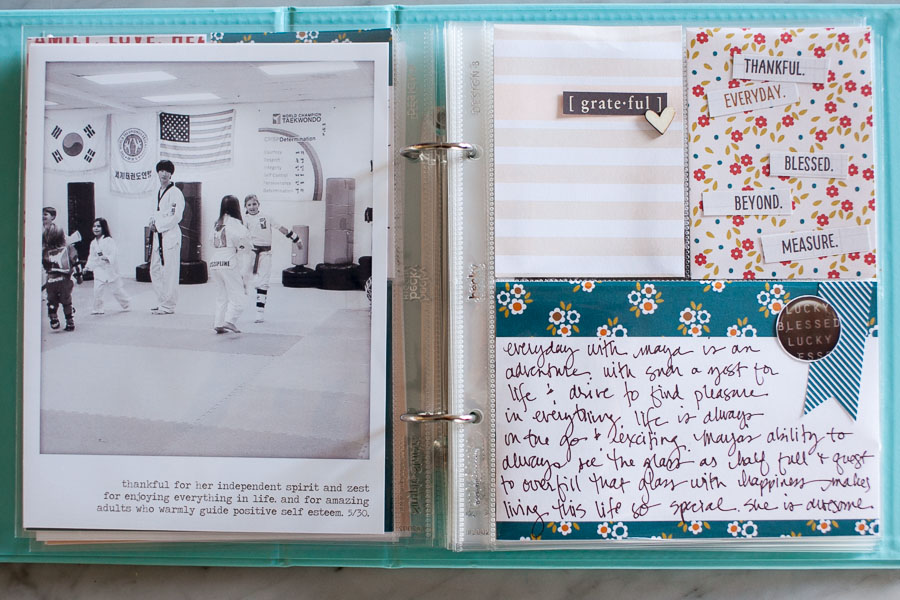 FAMILY. LOVE. HER
세계태권도연
WORLD CHAMPION
TAEKWONDO
Determination
Courtesy
Integrity
Self Control
Perseverance
Determination
thankful for her independent spirit and zest
for enjoying everything in life. and for amazing
adults who warmly guide positive self esteem. 5/30.
[ grate·ful ]
THANKFUL.
EVERYDAY.
BLESSED.
BEYOND.
MEASURE.
LUCKY
BLESSED
LUCKY
everyday with maya is an
adventure. with such a zest for
life & drive to find pleasure
in everything, life is always
on the go & exciting. maya's ability to
always see the glass as half full & quest
to overfill that glass with happiness makes
living this life so special. she is awesome